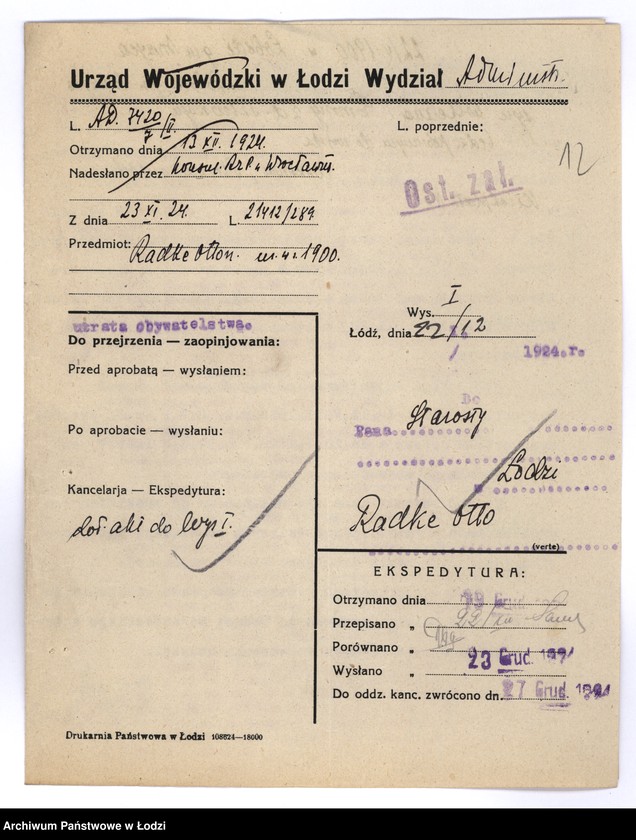 Urząd Wojewódzki w Łodzi Wydział Administr.
L. AD. 7420/II
7
L. poprzednie:
12
Otrzymano dnia 13 XII. 1924.
Nadesłano przez konsul. R.P. Wrocławiu.
Ost. zał.
Z dnia 23 XI. 24. L. 21412/284
Przedmiot: Radke Otton. ur. 4.I. 1900.
I
Wys.
Łódź, dnia 22/12 1924.r.
utrata obywatelstwa.
Do przejrzenia — zaopinjowania:
Przed aprobatą — wysłaniem:
Do
Pana Starosty
Po aprobacie — wysłaniu:
w Łodzi
Kancelarja — Ekspedytura:
Radke Otto
doł. akt do Wys I.
(verte)
EKSPEDYTURA:
Otrzymano dnia 19 Grud.
Przepisano „ 22/XII
Porównano „
Wysłano „ 23 Grud. 1924
Do oddz. kanc. zwrócono dn. 27 Grud. 1924
Drukarnia Państwowa w Łodzi 108624—18000
Archiwum Państwowe w Łodzi